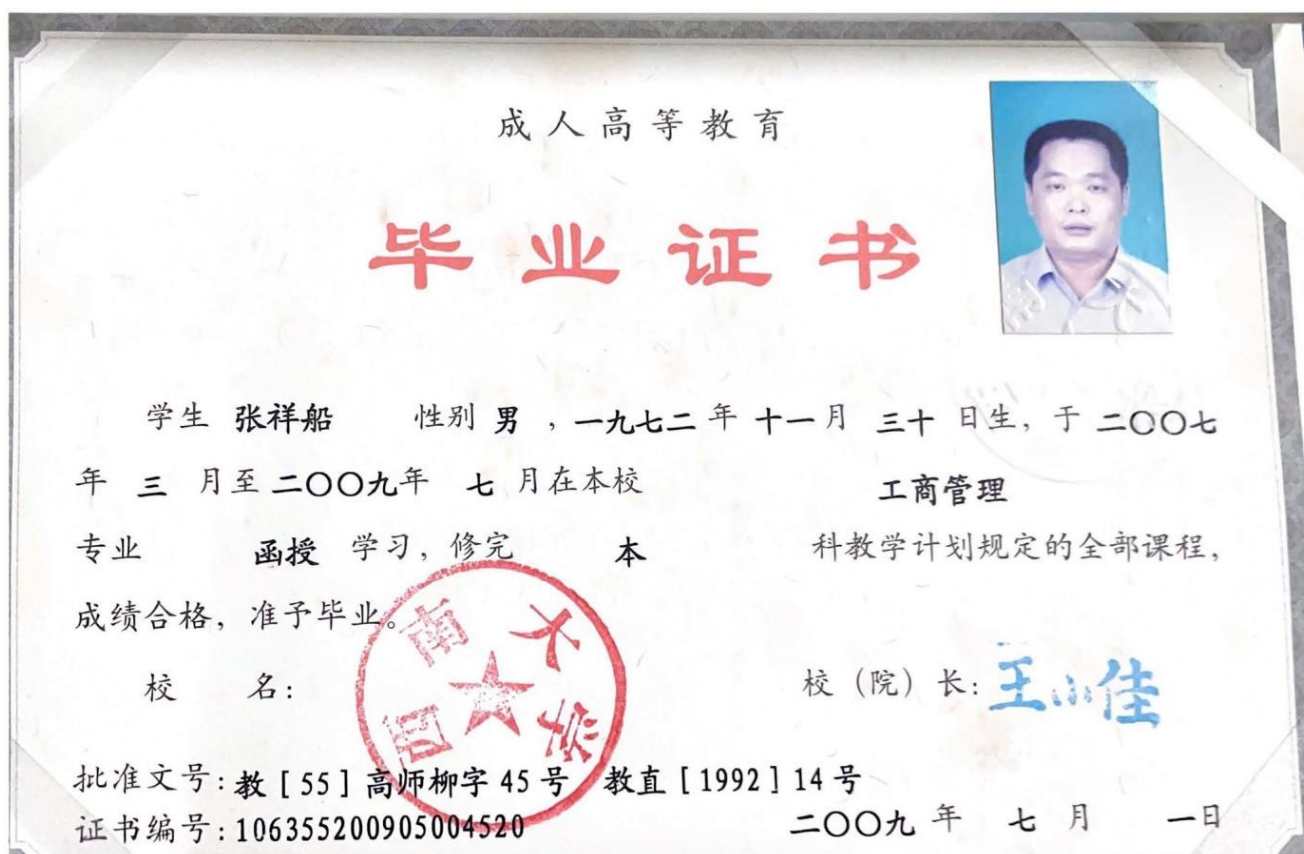 成人高等教育
毕业证书
学生 张祥船 性别 男 , 一九七二 年 十一 月 三十 日生, 于 二〇〇七
年 三 月至 二〇〇九年 七 月在本校 工商管理
专业 函授 学习, 修完 本 科教学计划规定的全部课程,
成绩合格, 准予毕业。
西南大学
校 名: 校 (院) 长: 王小佳
批准文号: 教 [55] 高师柳字 45 号 教直 [1992] 14 号
证书编号: 106355200905004520 二〇〇九 年 七 月 一日